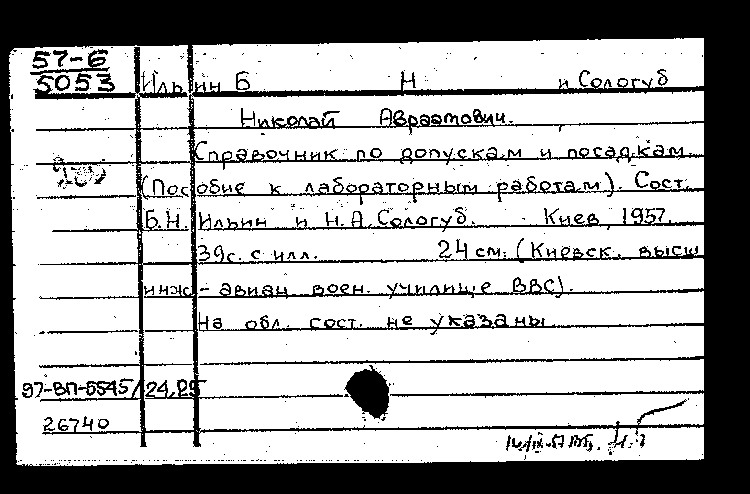 57-6
5053
Ильин Б Н и Сологуб
Николай Авраамович.
Справочник по допускам и посадкам
(Пособие к лабораторным работам). Сост.
Б.Н. Ильин и Н.А. Сологуб. Киев, 1957.
39с. с илл. 24 см. (Киевск. высш
инж-авиац воен. училище ВВС).
На обл. сост. не указаны
97-ВП-6545/24,25
26740